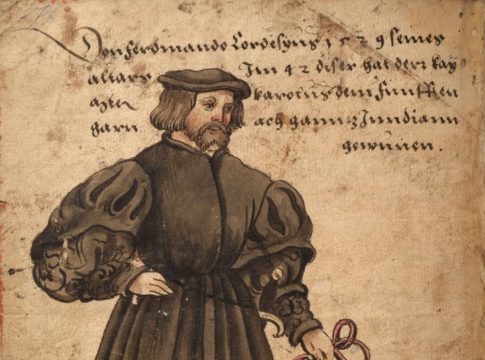 Don ferdinando Cordesyus 1529 seines
alters Im 42 diser hat derr kay
karolus dem funfften
ach gantz Inndiann
gewunen.